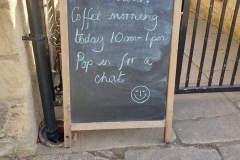 Coffee morning
today 10am-1pm
Pop in for a
chat